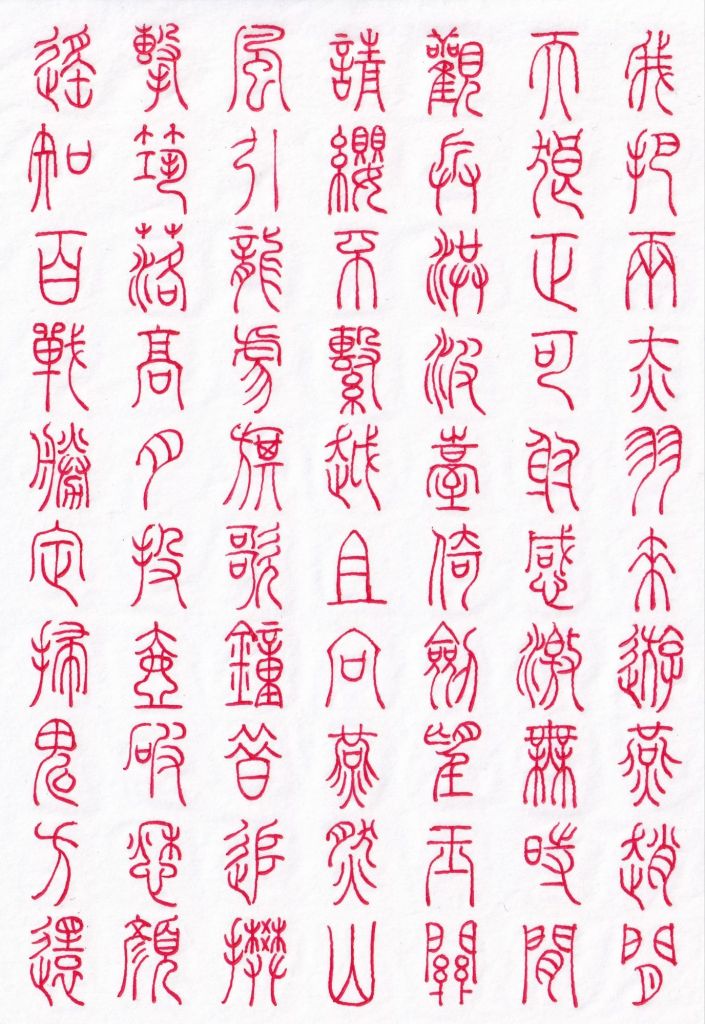 我把兩赤羽來遊燕趙間
天狼正可射感激無時閒
觀兵洪波臺倚劍望玉關
請纓不繫越且向燕然山
風引龍虎旗歌鐘昔追攀
擊筑落高月投壺破愁顏
遙知百戰勝定掃鬼方還